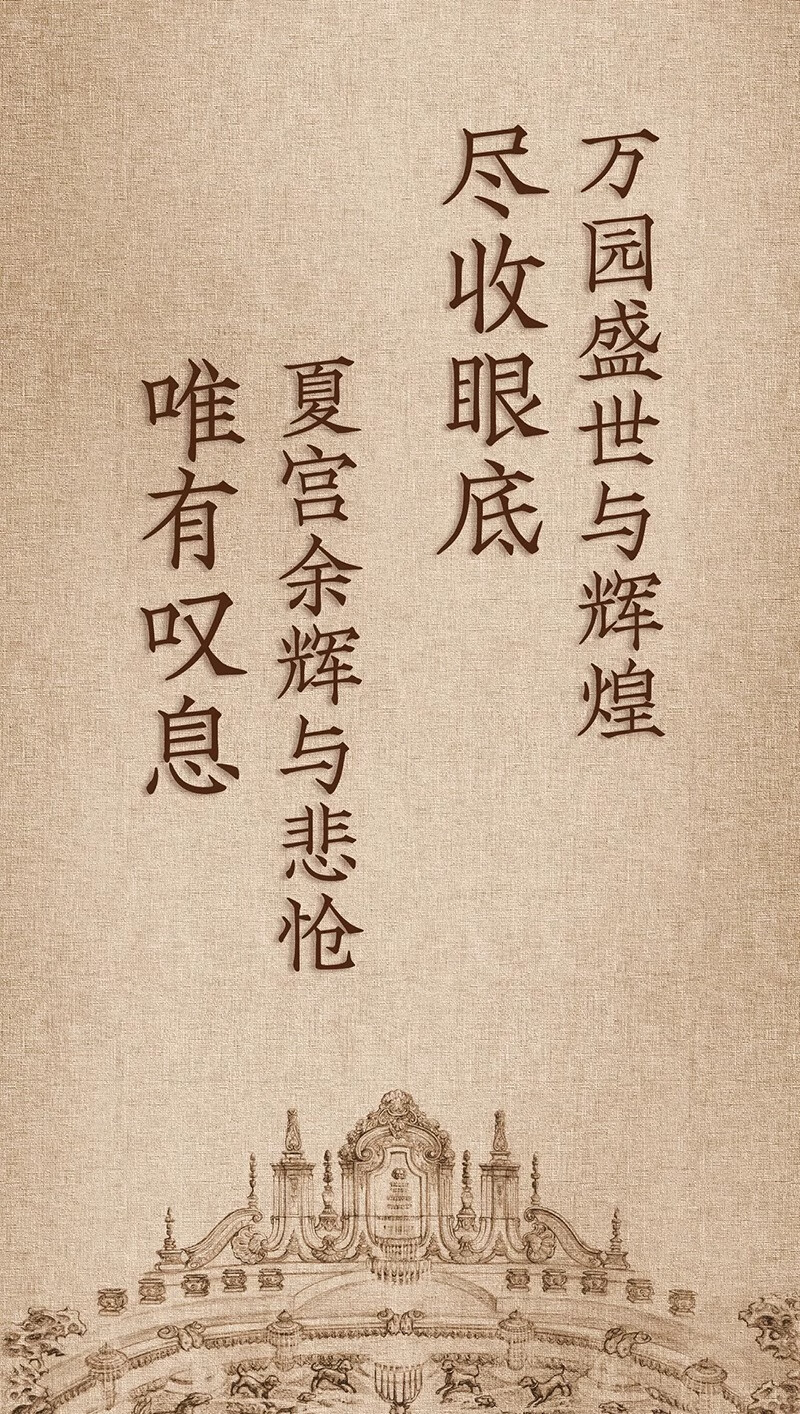 万园盛世与辉煌
尽收眼底
夏宫余辉与悲怆
唯有叹息